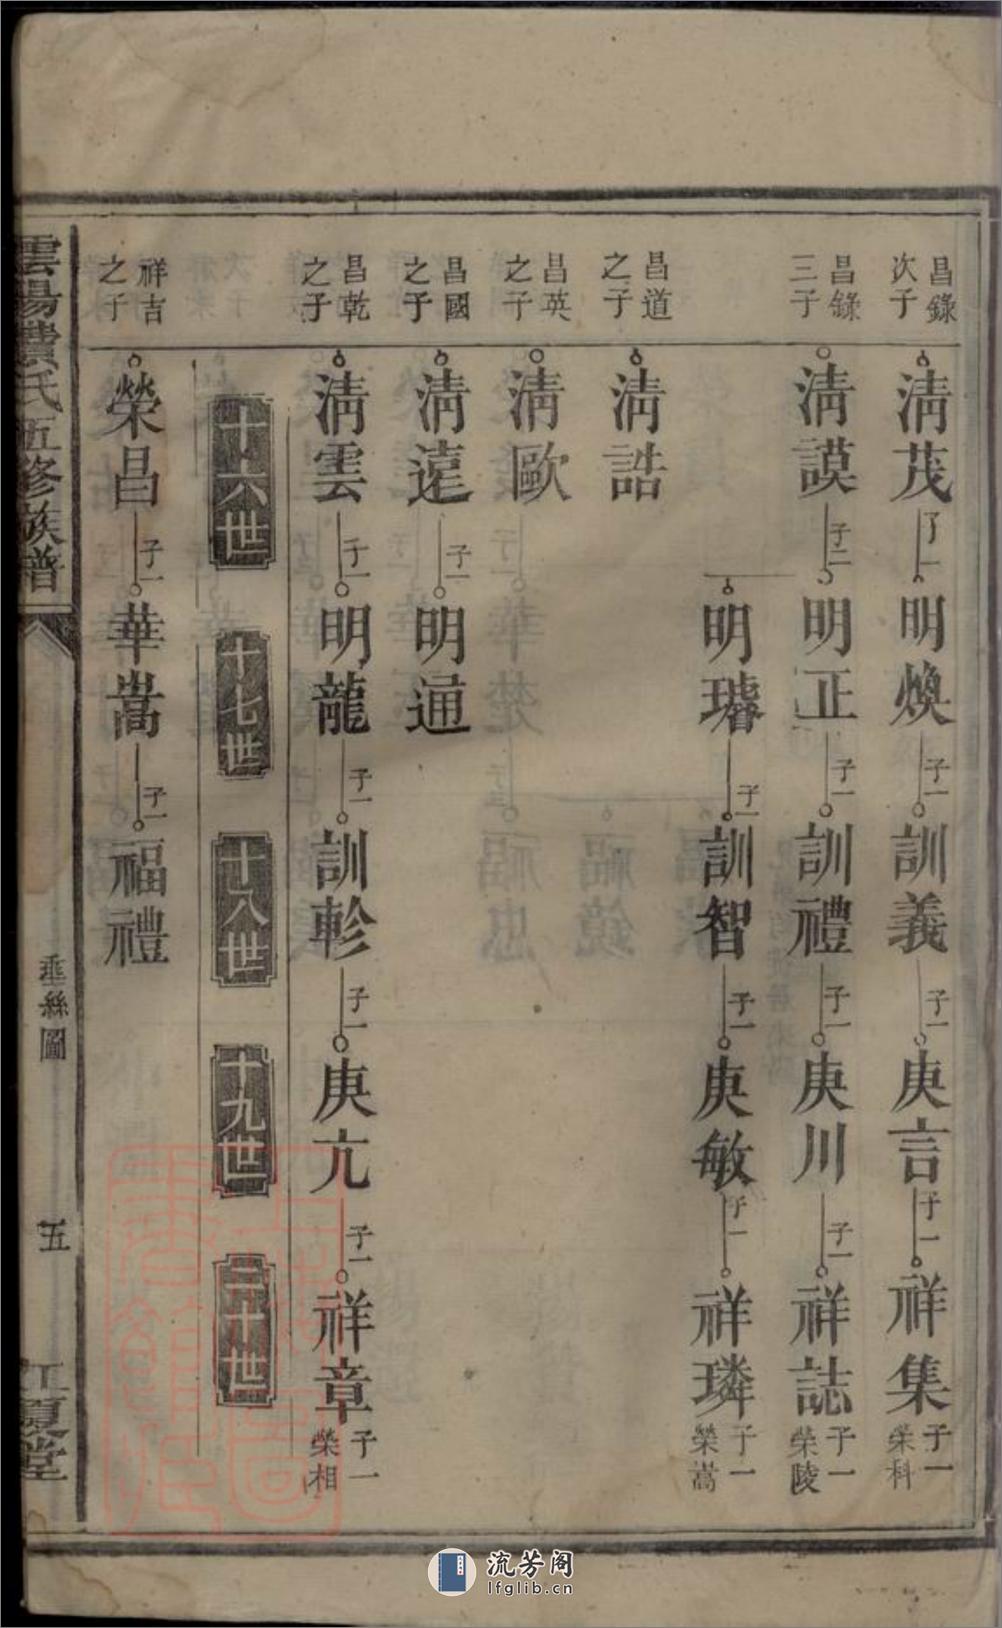 昌錄次子
清茂 子一 明煥 子一 訓義 子一 庚言 子一 祥集 子一榮科
昌錄三子
清謨 子二 明正 子一 訓禮 子一 庚川 子一 祥誌 子一榮陵
明璿 子一 訓智 子一 庚敏 子一 祥璘 子一榮嵩
昌道之子
清誥
昌英之子
清歐
昌國之子
清遠 子一 明通
昌乾之子
清雲 子一 明龍 子一 訓軫 子一 庚亢 子一 祥章 子一榮相
十六世 十七世 十八世 十九世 二十世
祥吉之子
榮昌 子一 華嵩 子一 福禮
雲陽費氏五修族譜 垂絲圖 五 江夏堂
流芳阁
lfglib.cn